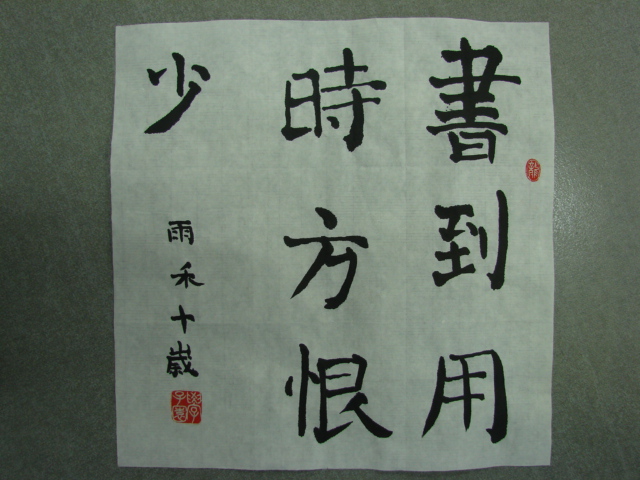 書到用
時方恨
少
雨禾十歲